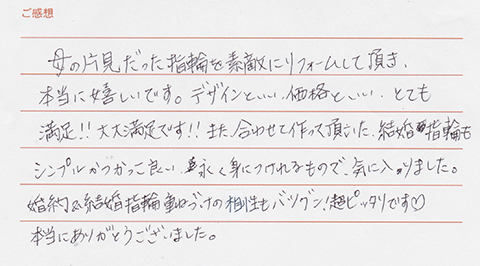 ご感想
母の片見だった指輪を素敵にリフォームして頂き、
本当に嬉しいです。デザインといい、価格といい、とても
満足!!大大満足です!!また、合わせて作って頂いた、結婚指輪も
シンプルかつかっこ良い、永く身につけれるもので、気に入りました。
婚約&結婚指輪重ねづけの相性もバツグン!超ピッタリです♡
本当にありがとうございました。